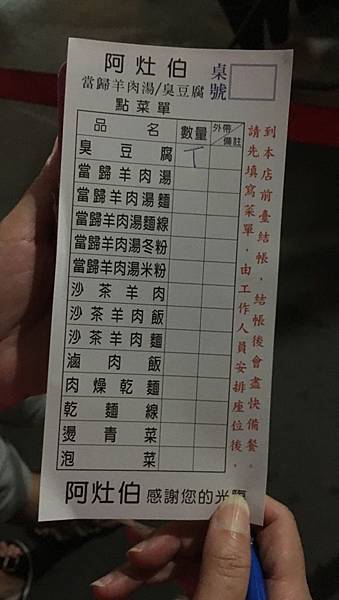 阿灶伯
桌號
當歸羊肉湯/臭豆腐
點菜單
品名 數量 外帶/備註
臭豆腐 丅
當歸羊肉湯
當歸羊肉湯麵
當歸羊肉湯麵線
當歸羊肉湯冬粉
當歸羊肉湯米粉
沙茶羊肉
沙茶羊肉飯
沙茶羊肉麵
滷肉飯
肉燥乾麵
乾麵線
燙青菜
泡菜
請先填寫菜單，由工作人員安排座位後，
到本店前臺結帳，結帳後會盡快備餐。
阿灶伯 感謝您的光臨